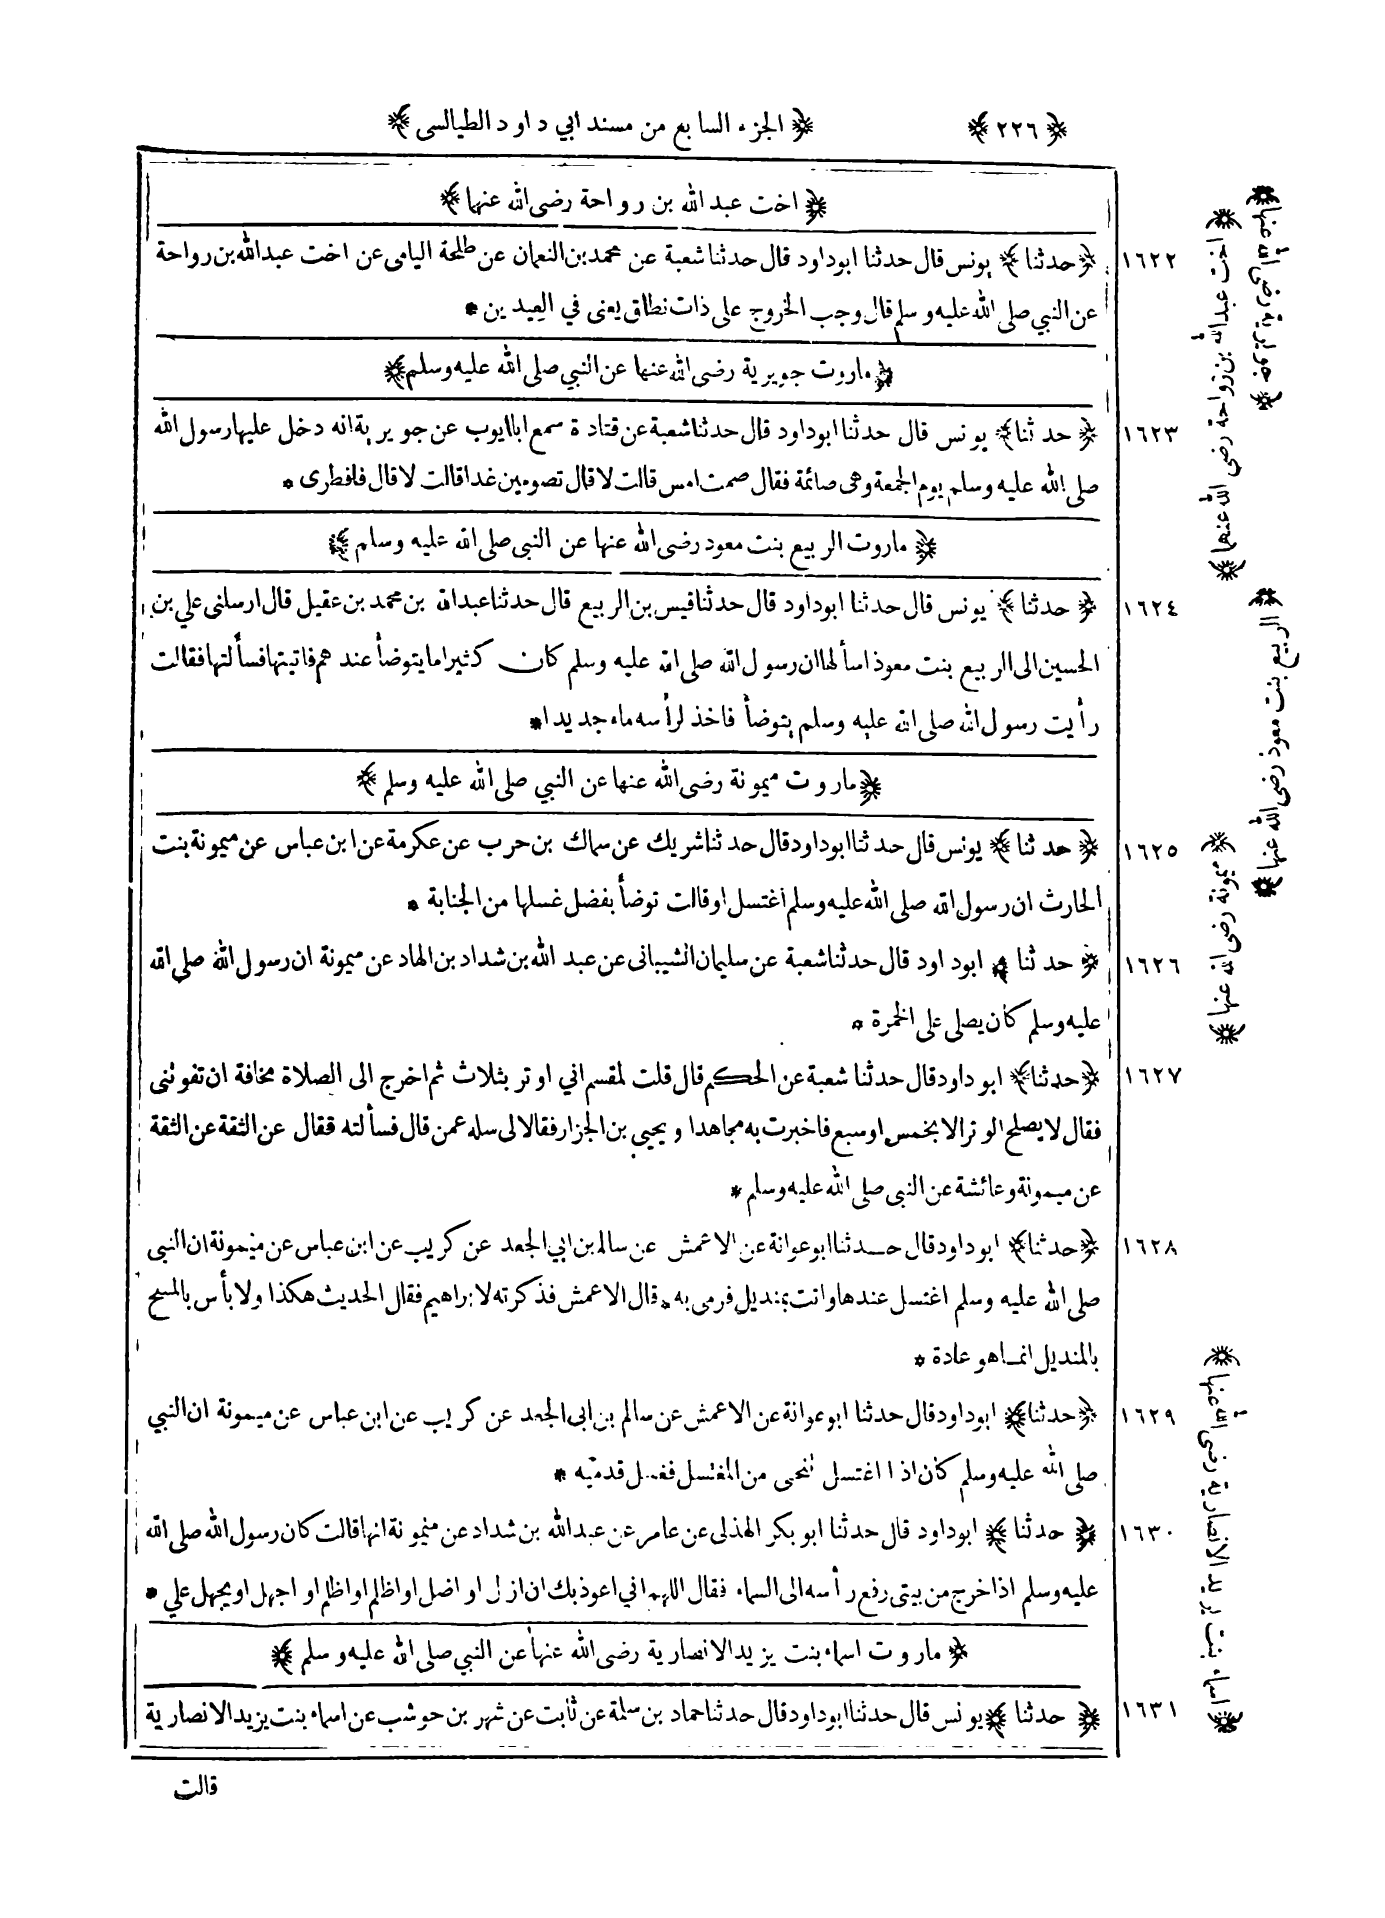 ﴿ ٢٢٦ ﴾ ﴿ الجزء السابع من مسند ابي داود الطيالسى ﴾
﴿ اخت عبد الله بن رواحة رضى الله عنها ﴾
١٦٢٢ ﴿ حدثنا ﴾ يونس قال حدثنا ابوداود قال حدثنا شعبة عن محمد بن النعمان عن طلحة اليامى عن اخت عبد الله بن رواحة
عن النبي صلى الله عليه وسلم قال وجب الخروج على ذات نطاق يعنى في العيدين *
﴿ ماروت جويرية رضى الله عنها عن النبي صلى الله عليه وسلم ﴾
١٦٢٣ ﴿ حدثنا ﴾ يونس قال حدثنا ابوداود قال حدثنا شعبة عن قتادة سمع ابا ايوب عن جويرية انه دخل عليها رسول الله
صلى الله عليه وسلم يوم الجمعة وهى صائمة فقال صمت امس قالت لا قال تصومين غدا قالت لا قال فافطرى *
﴿ ماروت الربيع بنت معود رضى الله عنها عن النبى صلى الله عليه وسلم ﴾
١٦٢٤ ﴿ حدثنا ﴾ يونس قال حدثنا ابوداود قال حدثنا قيس بن الربيع قال حدثنا عبد الله بن محمد بن عقيل قال ارسلنى علي بن
الحسين الى الربيع بنت معوذ اسألها ان رسول الله صلى الله عليه وسلم كان كثيرا ما يتوضأ عندهم فاتيتها فسألتها فقالت
رأيت رسول الله صلى الله عليه وسلم يتوضأ فاخذ لرأسه ماء جديدا *
﴿ ماروت ميمونة رضى الله عنها عن النبي صلى الله عليه وسلم ﴾
١٦٢٥ ﴿ حدثنا ﴾ يونس قال حدثنا ابوداود قال حدثنا شريك عن سماك بن حرب عن عكرمة عن ابن عباس عن ميمونة بنت
الحارث ان رسول الله صلى الله عليه وسلم اغتسل او قالت توضأ بفضل غسلها من الجنابة *
١٦٢٦ ﴿ حدثنا ﴾ ابوداود قال حدثنا شعبة عن سليمان الشيبانى عن عبد الله بن شداد بن الهاد عن ميمونة ان رسول الله صلى الله
عليه وسلم كان يصلى على الخمرة *
١٦٢٧ ﴿ حدثنا ﴾ ابو داود قال حدثنا شعبة عن الحكم قال قلت لمقسم اني اوتر بثلاث ثم اخرج الى الصلاة مخافة ان تفوتنى
فقال لا يصلح الوتر الا بخمس او سبع فاخبرت به مجاهدا ويحيى بن الجزار فقالا لى سله عمن قال فسألته فقال عن الثقة عن الثقة
عن ميمونة وعائشة عن النبى صلى الله عليه وسلم *
١٦٢٨ ﴿ حدثنا ﴾ ابوداود قال حدثنا ابوعوانة عن الاعمش عن سالم بن ابي الجعد عن كريب عن ابن عباس عن ميمونة ان النبى
صلى الله عليه وسلم اغتسل عندها واتت بمنديل فرمى به * قال الاعمش فذكرته لابراهيم فقال الحديث هكذا ولا بأس بالمسح
بالمنديل انما هو عادة *
١٦٢٩ ﴿ حدثنا ﴾ ابوداود قال حدثنا ابوعوانة عن الاعمش عن سالم بن ابى الجعد عن كريب عن ابن عباس عن ميمونة ان النبي
صلى الله عليه وسلم كان اذا اغتسل تنحى من المغتسل فغسل قدميه *
١٦٣٠ ﴿ حدثنا ﴾ ابوداود قال حدثنا ابو بكر الهذلى عن عامر عن عبد الله بن شداد عن ميمونة انها قالت كان رسول الله صلى الله
عليه وسلم اذا خرج من بيتى رفع رأسه الى السماء فقال اللهم اني اعوذ بك ان ازل او اضل او اظلم او اظلم او اجهل او يجهل علي *
﴿ ماروت اسماء بنت يزيد الانصارية رضى الله عنها عن النبي صلى الله عليه وسلم ﴾
١٦٣١ ﴿ حدثنا ﴾ يونس قال حدثنا ابوداود قال حدثنا حماد بن سلمة عن ثابت عن شهر بن حوشب عن اسماء بنت يزيد الانصارية
قالت
﴿ اخت عبد الله بن رواحة رضى الله عنها ﴾
﴿ جويرية رضى الله عنها ﴾
﴿ الربيع بنت معوذ رضى الله عنها ﴾
﴿ ميمونة رضى الله عنها ﴾
﴿ اسماء بنت يزيد الانصارية رضى الله عنها ﴾